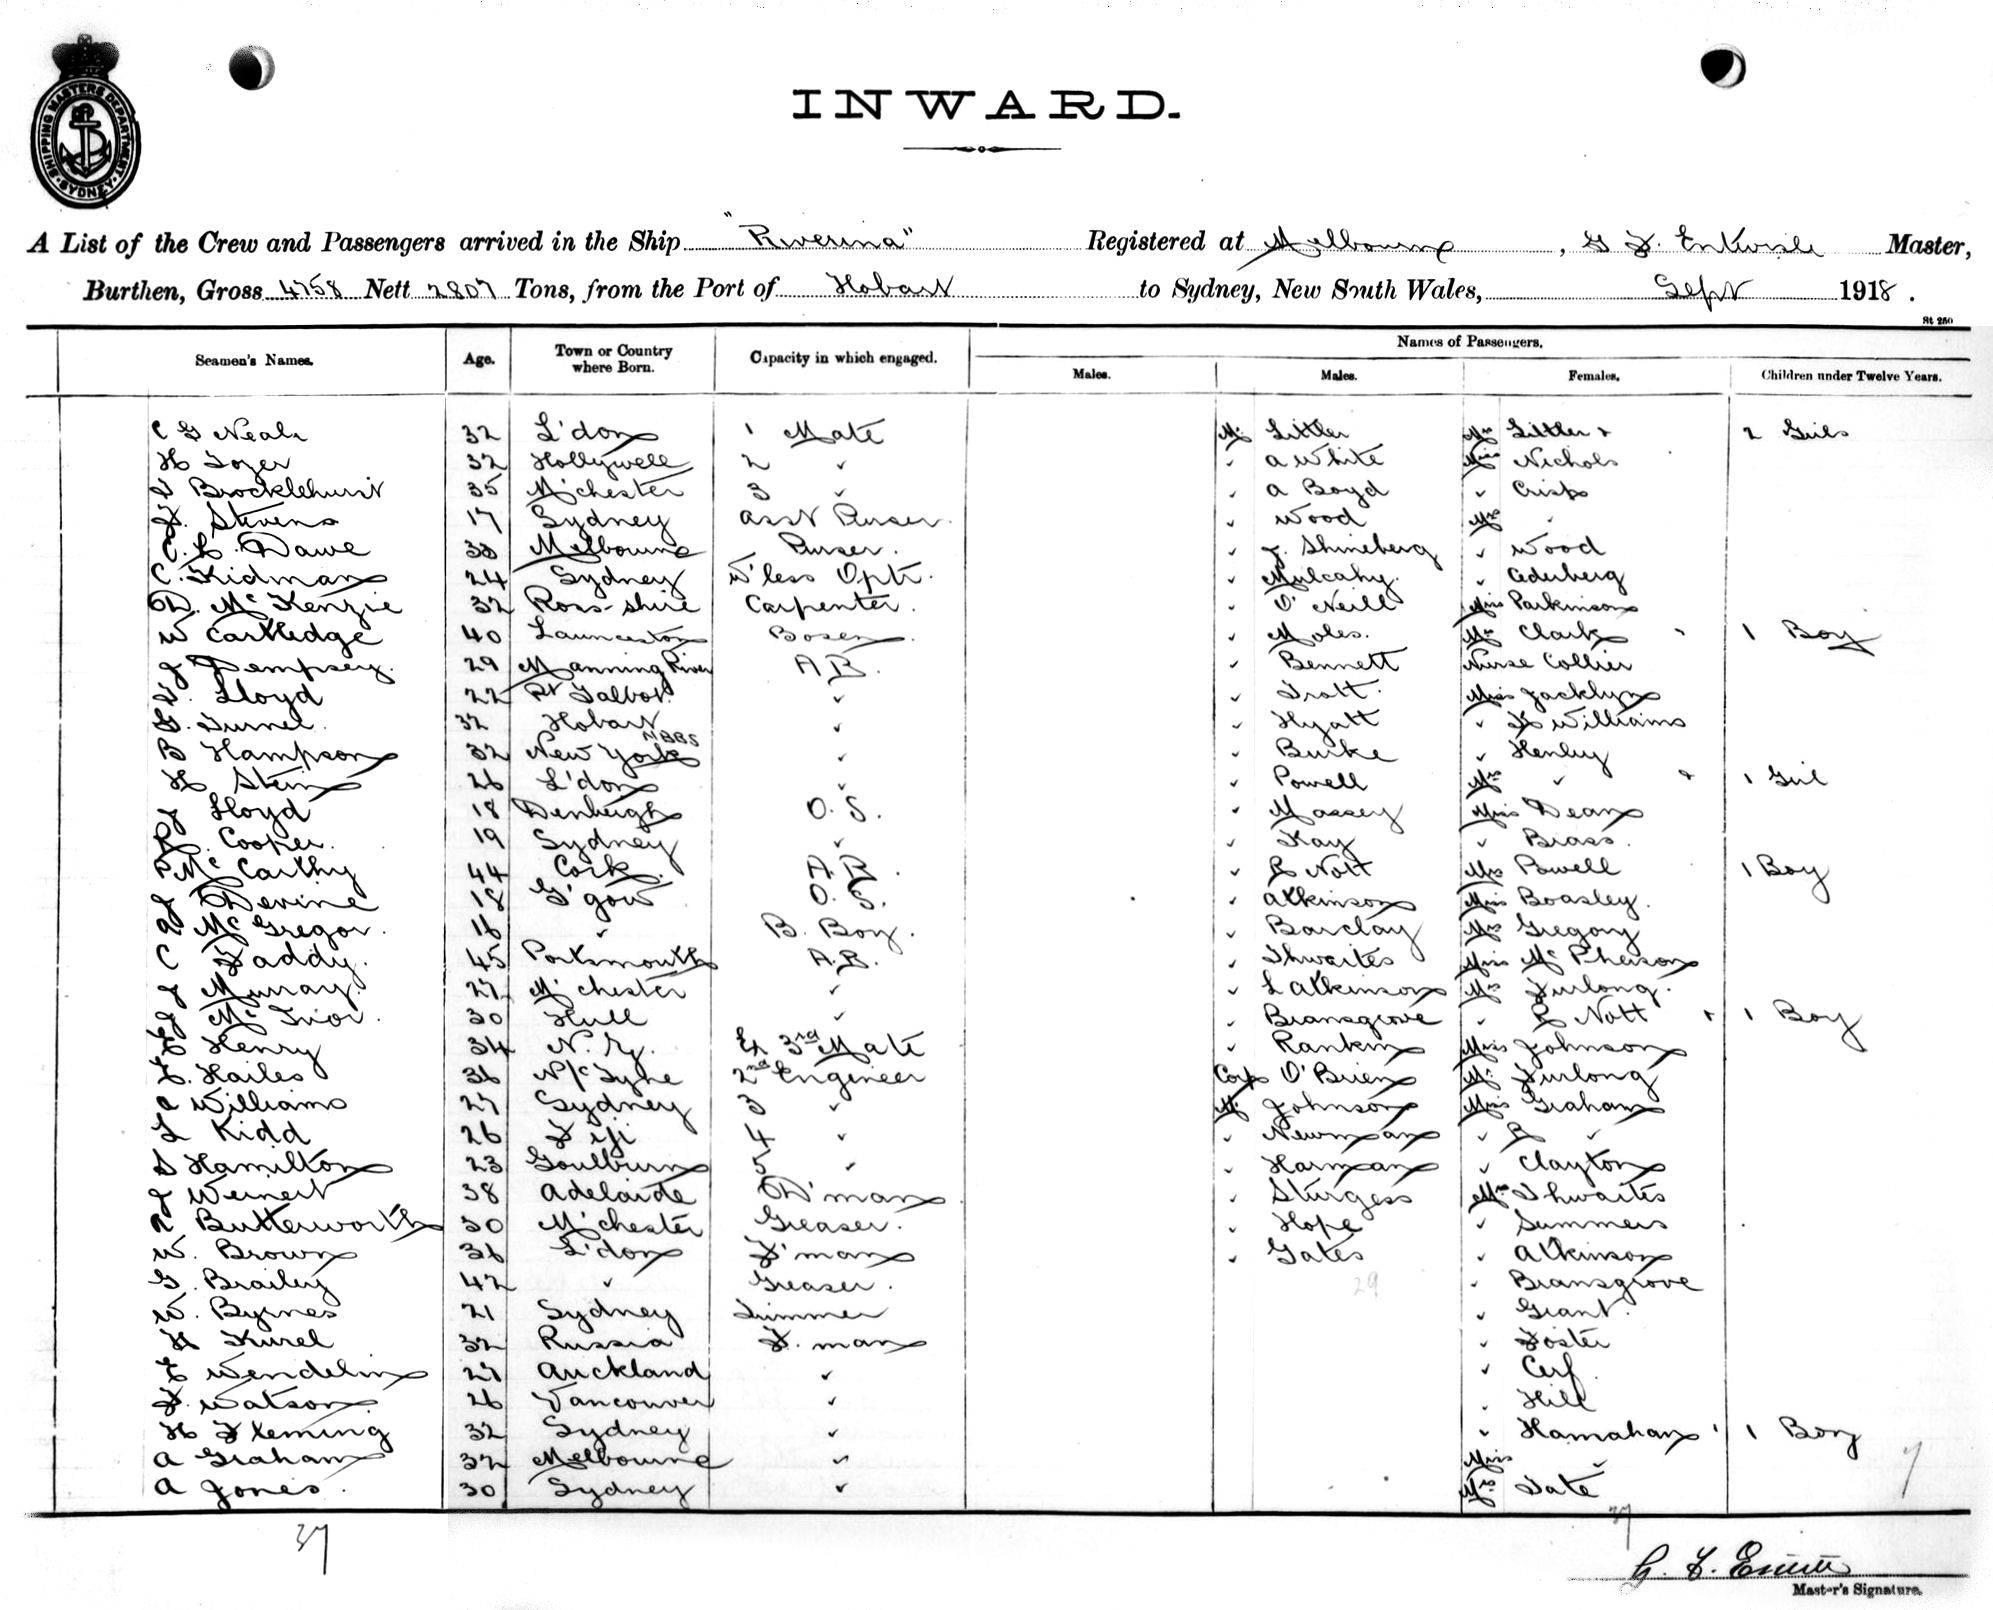 SHIPPING MASTERS DEPARTMENT SYDNEY
INWARD.
A List of the Crew and Passengers arrived in the Ship "Riverina" Registered at Melbourne, G F. Entwisle Master,
Burthen, Gross 4758 Nett 2807 Tons, from the Port of Hobart to Sydney, New South Wales, Sept 1918.
St 250
Names of Passengers.
Seamen's Names. Age. Town or Country where Born. Capacity in which engaged. Males. Males. Females. Children under Twelve Years.
C G Neale 32 L'don 1 Mate Mr Littler Mrs Littler + 2 Girls
H Tozer 32 Hollywell 2 " " A White Miss Nichols
Brocklehurst 35 M'chester 3 " " A Boyd " Crisp
F. Stevens 17 Sydney Asst Purser. " Wood Mrs "
C. L. Dawe 38 Melbourne Purser. " J. Shineberg " Wood
C. Kidman 24 Sydney W'less Optr. " Mulcahy. " Cederberg
D. McKenzie 32 Ross-shire Carpenter. " O'Neill Miss Parkinson
W Cartledge 40 Launceston Bosen. " Moles. Mrs Clark " 1 Boy
J Dempsey. 29 Manning River A.B. " Bennett Nurse Collier
T. Lloyd 22 Pt Talbot " " Trott. Miss Jacklyn
G. Turnel. 32 Hobart " " Hyatt " F Williams
B Hampson 32 New York NBBS " " Burke " Henley
H Stein 26 L'don " " Powell Mrs " + 1 Girl
J Lloyd 18 Denbeigh O.S. " Massey Miss Dean
R. Cooper. 19 Sydney " " Kay " Brass.
P McCarthy 44 Cork. A.B. " R Nott Mrs Powell 1 Boy
J Devine 18 G'gow O.S. " Atkinson Miss Boasley.
A McGregor. 16 " B. Boy. " Barclay Mrs Gregory
C Faddy. 45 Portsmouth A.B. " Thwaites Miss McPherson
J Murray. 27 M'chester " " L Atkinson Mrs Furlong.
J McIvor. 30 Hull " " Bransgrove " R Nott + 1 Boy
Henry 34 N.Z. Ex 3rd Mate " Rankin Miss Johnson
E. Hailes 36 N/c Tyne 2nd Engineer Corp O'Brien Mr Furlong
A Williams 27 Sydney 3 " Mr Johnson Miss Graham
L Kidd 26 Fiji 4 " " Newman " R "
S Hamilton 23 Goulburn 5 " " Harman " Clayton
J Weinert 38 Adelaide D'man " Sturgess Mrs Thwaites
Butterworth 30 M'chester Greaser. " Hope " Summers
W. Brown 36 L'don F'man " Gates " Atkinson
G. Brailey 42 " Greaser. 29 " Bransgrove
W. Byrnes 21 Sydney Trimmer " Grant.
H Kurel 32 Russia F.man " Foster
E Wendelin 27 Auckland " " Cerf.
F. Watson. 26 Vancouver " " Hill
H Fleming 32 Sydney " " Hamahan " 1 Boy
A Graham 32 Melbourne " Miss "
A Jones. 30 Sydney " Mrs Tate 7
37 37
Master's Signature.